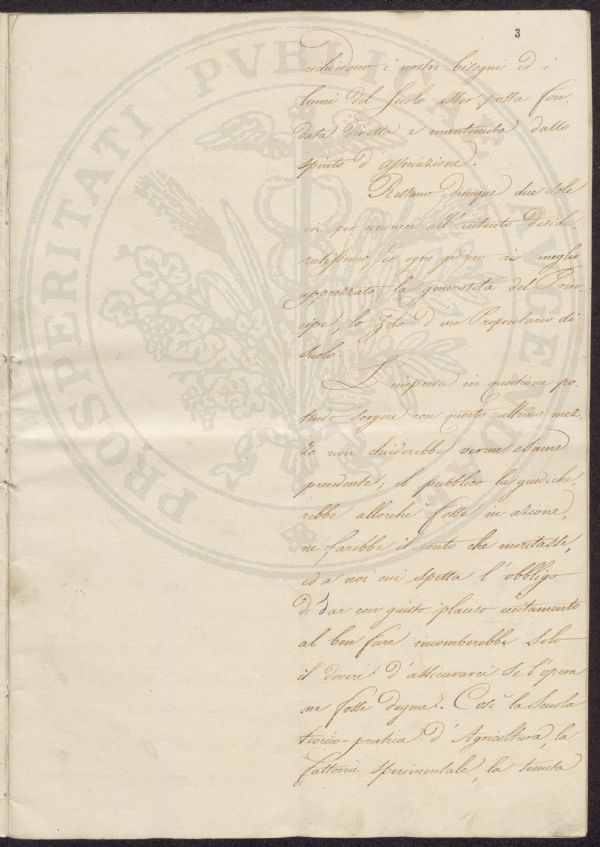 3
richiedono i nostri bisogni ed i
lumi del secolo esser possa fon-
data diretta e mantenuta dallo
spirito d'associazione.
Restano dunque due sole
vie per condurci all'intento deside
ratissimo, ed ogni giorno vie meglio
apprezzato, la generosità del Prin-
cipe, lo Zelo d'un Proprietario di
suolo.
L'impresa in questione po
tendo sorgere con questo ultimo mez-
zo non chiederebbe verun esame
precedente; il pubblico la giudiche-
rebbe allorché fosse in azione,
ne farebbe il conto che meritasse,
ed a noi cui spetta l'obbligo
di dar con giusto plauso eccitamento
al ben fare incomberebbe solo
il dovere d'assicurarci se l'opera
ne fosse degna. Così la Scuola
teorico-pratica d'Agricoltura, la
fattoria sperimentale, la tenuta
PROSPERITATI PVBLICAE AVGENDAE